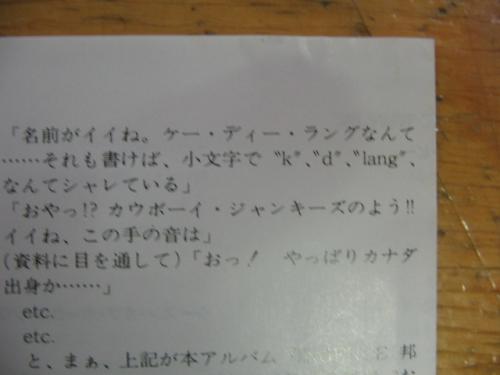 「名前がイイね。ケー・ディー・ラングなんて
……それも書けば、小文字で〝k〟、〝d〟、〝lang〟、
なんてシャレている」
「おやっ!? カウボーイ・ジャンキーズのよう!!
イイね、この手の音は」
(資料に目を通して)「おっ! やっぱりカナダ
出身か……」
etc.
etc.
と、まぁ、上記が本アルバム 邦